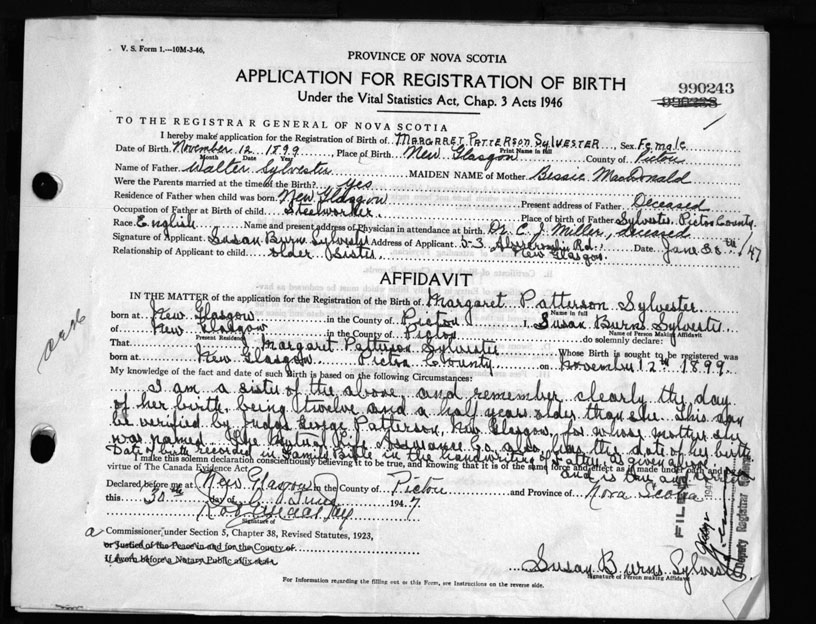 V. S. Form 1.—10M-3-46,
PROVINCE OF NOVA SCOTIA
APPLICATION FOR REGISTRATION OF BIRTH
Under the Vital Statistics Act, Chap. 3 Acts 1946
990243
TO THE REGISTRAR GENERAL OF NOVA SCOTIA
I hereby make application for the Registration of Birth of MARGARET PATTERSON SYLVESTER Sex Female
Print Name in full
Date of Birth November 12 1899 Place of Birth New Glasgow County of Pictou
Month Date Year
Name of Father Walter Sylvester MAIDEN NAME of Mother Bessie MacDonald
Were the Parents married at the time of the Birth? Yes
Residence of Father when child was born New Glasgow Present address of Father Deceased
Occupation of Father at Birth of child Steelworker Place of birth of Father Sylvester Pictou County
Race English Name and present address of Physician in attendance at birth Dr. C. J. Miller, deceased
Signature of Applicant Susan Burns Sylvester Address of Applicant 53 Abercrombie Rd. Date June 30th/47
Relationship of Applicant to child older Sister New Glasgow.
AFFIDAVIT
IN THE MATTER of the application for the Registration of the Birth of Margaret Patterson Sylvester
Name in full
born at New Glasgow in the County of Pictou I, Susan Burns Sylvester
Name of Person Making Affidavit
of New Glasgow in the County of Pictou do solemnly declare:
Present Residence
That Margaret Patterson Sylvester Whose Birth is sought to be registered was
born at New Glasgow Pictou County on November 12th 1899.
My knowledge of the fact and date of such Birth is based on the following Circumstances:
I am a sister of the above and remember clearly the day
of her birth, being twelve and a half years older than she. This can
be verified by Judge George Patterson, New Glasgow, for whose mother she
was named. The Mutual Life Assurance Co. also has the date of her birth
Date of birth recorded in Family Bible in the handwriting of father, as given above
and is true and correct
I make this solemn declaration conscientiously believing it to be true, and knowing that it is of the same force and effect as if made under oath and
virtue of The Canada Evidence Act
Declared before me at New Glasgow in the County of Pictou and Province of Nova Scotia
this 30th day of June 1947
Signature of
a Commissioner, under Section 5, Chapter 38, Revised Statutes, 1923,
or Justice of the Peace in and for the County of
If sworn before a Notary Public affix seal
Susan Burns Sylvester
Signature of Person making Affidavit
For Information regarding the filling out of this Form, see Instructions on the reverse side.
FILED
Deputy Registrar General